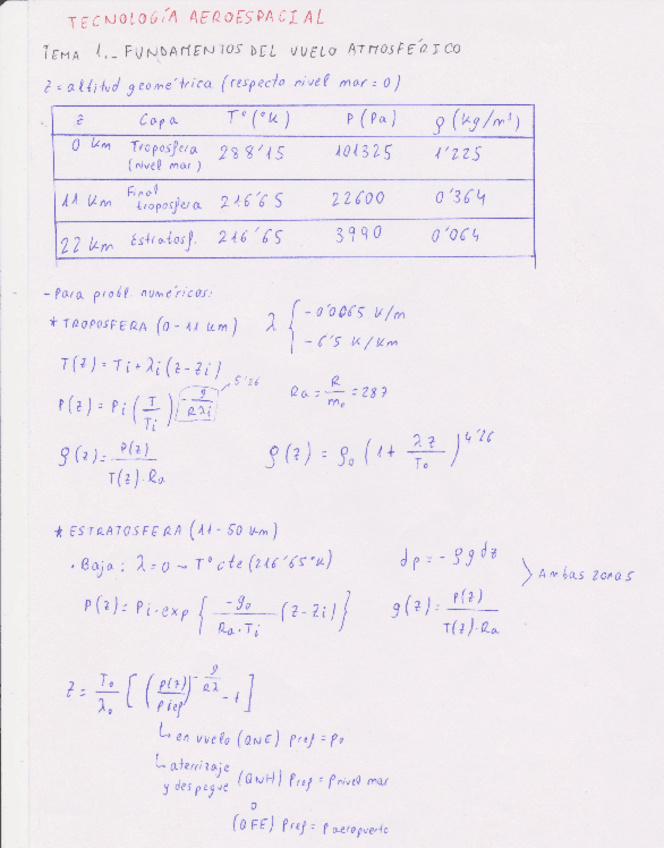 TECNOLOGÍA AEROESPACIAL
TEMA 1.- FUNDAMENTOS DEL VUELO ATMOSFÉRICO
z = altitud geométrica (respecto nivel mar = 0)
z Capa Tº(ºK) P (Pa) ρ (kg/m³)
0 km Troposfera (nivel mar) 288'15 101325 1'225
11 km Final troposfera 216'65 22600 0'364
22 km Estratosf. 216'65 3990 0'064
- Para probl. numéricos:
* TROPOSFERA (0-11 km) λ { -0'0065 K/m
-6'5 K/km
T(z) = Ti + λi (z - zi)
P(z) = Pi (T/Ti)^(-g/(Rλi)) 5'26 Ra = R/mo = 287
ρ(z) = P(z)/(T(z)·Ra) ρ(z) = ρ0 (1 + λz/To)^4'26
* ESTRATOSFERA (11-50 km)
· Baja: λ=0 → Tº cte (216'65ºK) dp = -ρg dz
P(z) = Pi·exp { -g0/(Ra·Ti) (z-zi) } ρ(z) = P(z)/(T(z)·Ra) > Ambas zonas
z = To/λo [ (P(z)/Pref)^(-g/(Rλ)) - 1 ]
↳ en vuelo (QNE) Pref = Po
↳ aterrizaje y despegue (QNH) Pref = P nivel mar
o
(QFE) Pref = P aeropuerto